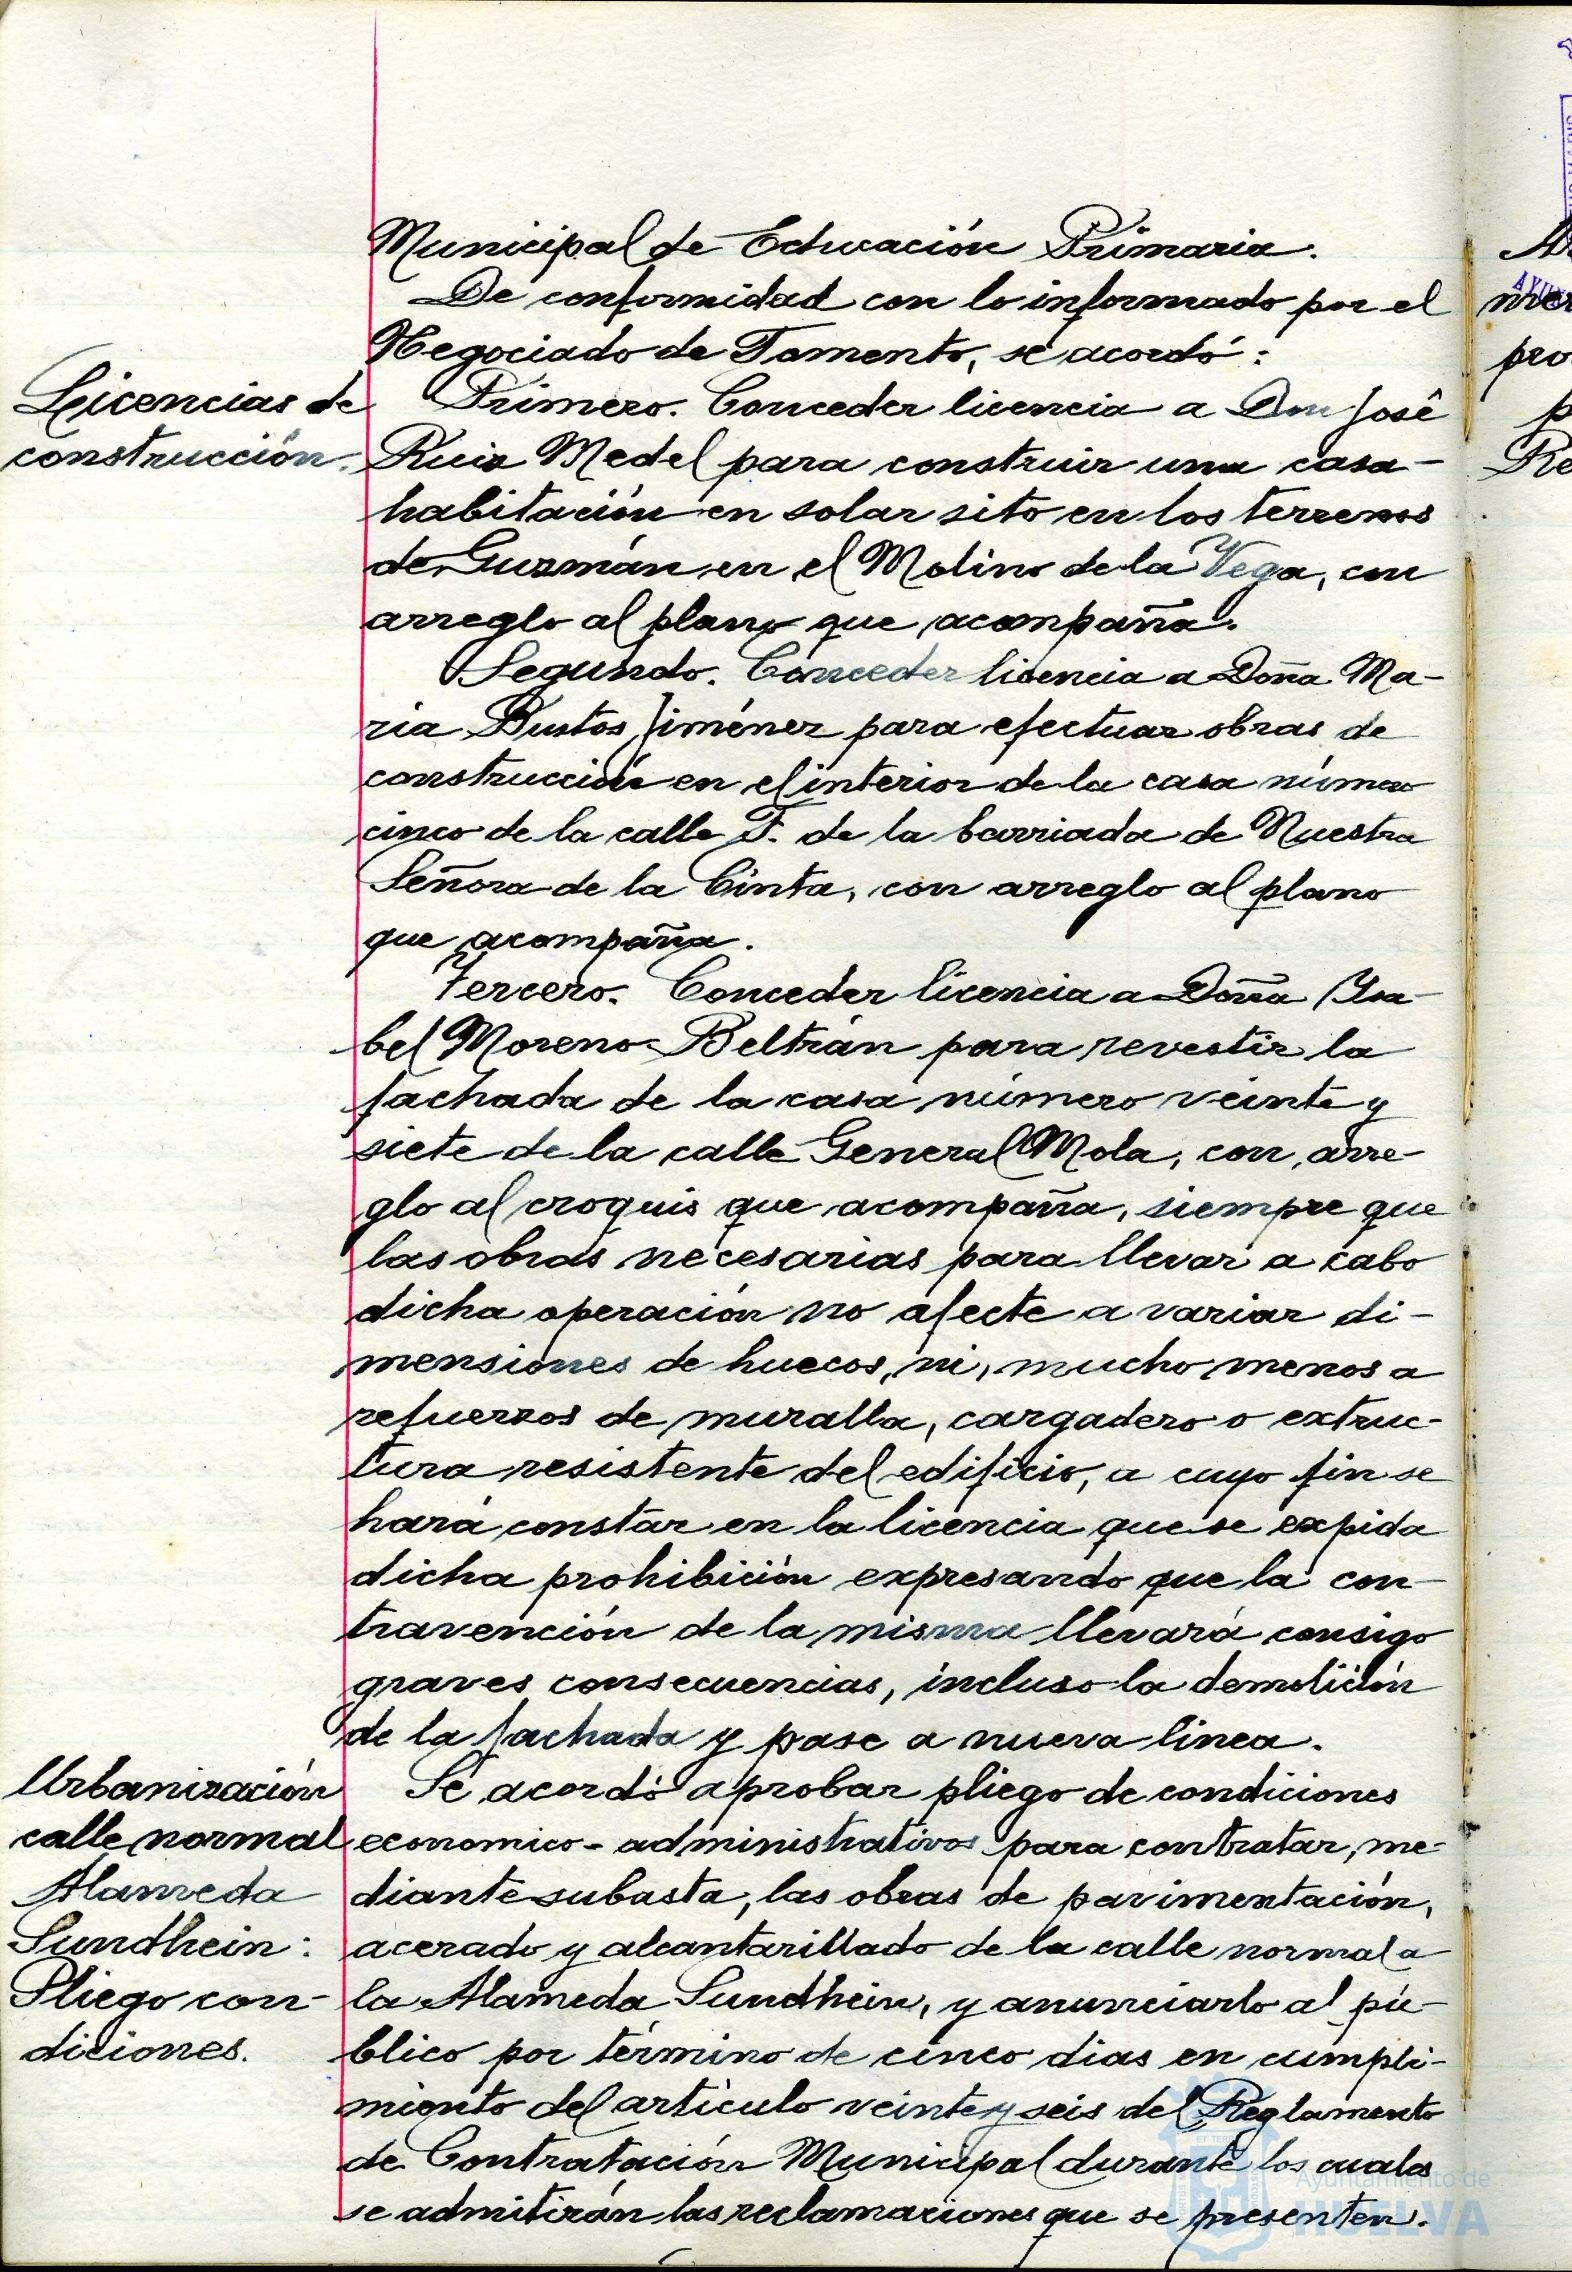 Municipal de Educación Primaria.
De conformidad con lo informado por el
Negociado de Fomento, se acordó:
Licencias de
construcción.
Primero. Conceder licencia a Don José
Ruiz Medel para construir una casa-
habitación en solar sito en los terrenos
de Guzmán en el Molino de la Vega, con
arreglo al plano que acompaña.
Segundo. Conceder licencia a Doña Ma-
ria Bustos Jiménez para efectuar obras de
construcción en el interior de la casa número
cinco de la calle F. de la barriada de Nuestra
Señora de la Cinta, con arreglo al plano
que acompaña.
Tercero. Conceder licencia a Doña Ysa-
bel Moreno Beltrán para revestir la
fachada de la casa número veinte y
siete de la calle General Mola, con arre-
glo al croquis que acompaña, siempre que
las obras necesarias para llevar a cabo
dicha operación no afecte a variar di-
mensiones de huecos, ni, mucho menos a
refuerzos de muralla, cargadero o extruc-
tura resistente del edificio, a cuyo fin se
hará constar en la licencia que se expida
dicha prohibición expresando que la con-
travención de la misma llevará consigo
graves consecuencias, incluso la demolición
de la fachada y pase a nueva linea.
Urbanización
calle normal
Alameda
Sundhein:
Pliego con-
diciones.
Se acordó aprobar pliego de condiciones
economico-administrativos para contratar, me-
diante subasta, las obras de pavimentación,
acerado y alcantarillado de la calle normal a
la Alameda Sundhein, y anunciarlo al pú-
blico por término de cinco dias en cumpli-
miento del artículo veinte y seis del Reglamento
de Contratación Municipal durante los cuales
se admitirán las reclamaciones que se presenten.
Ayuntamiento de
HUELVA